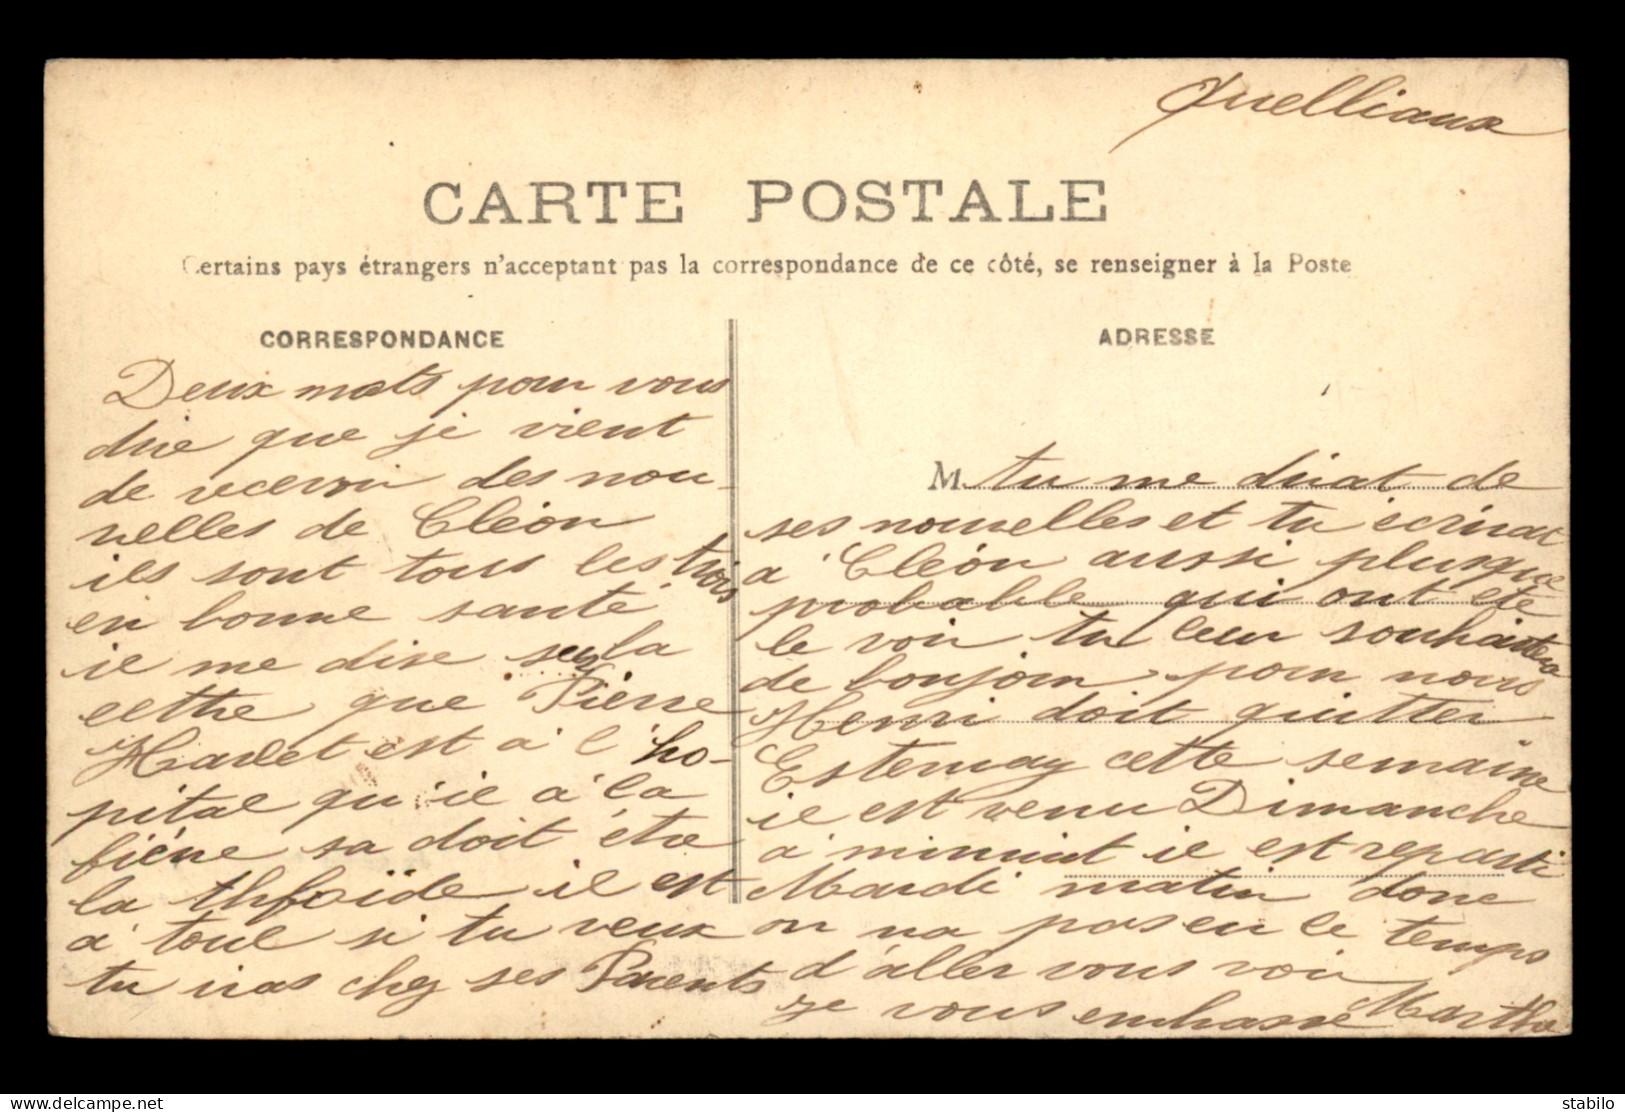 Quelliaux
CARTE POSTALE
Certains pays étrangers n'acceptant pas la correspondance de ce côté, se renseigner à la Poste
CORRESPONDANCE
Deux mots pour vous
dire que je vient
de recevoir des nou-
velles de Cléon
ils sont tous les trois
en bonne santé
il me dise sur la
cethre que Pierre
est à l'ho-
pital qu'il à la
fièvre sa doit être
la thfoïde il est
à toul si tu veux
tu iras chez ses Parents
ADRESSE
M. tu me dirat de
ses nouvelles et tu écrirat
à Cléon aussi plusque
probable qui ont été
le voir tu leur souhaitera
de bonjour pour nous
Henri doit quitter
Esternay cette semaine
il est venu Dimanche
à minuit il est reparti
Mardi matin donc
on na pas eu le temps
d'aller vous voir
je vous embrasse Marthe
stabilo